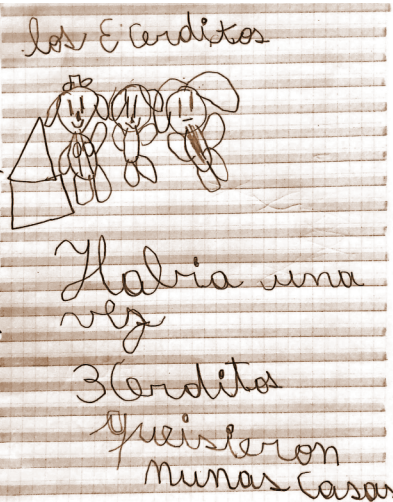 los 3 cerditos
Habia una
vez
3 Cerditos
queisieron
nunas Casas